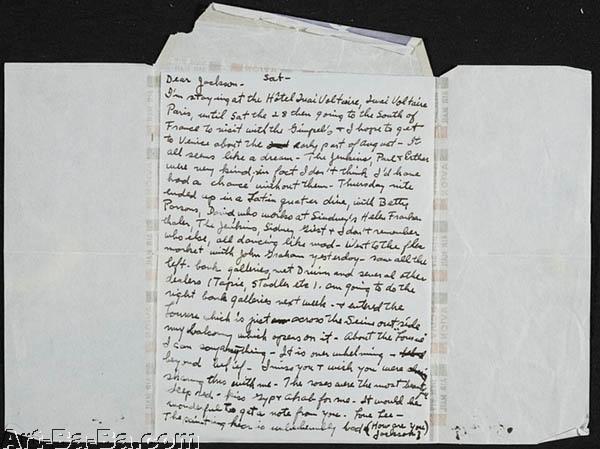 Dear Jackson - Sat -
I'm staying at the Hôtel Quai Voltaire, Quai Voltaire
Paris, until Sat the 28 then going to the South of
France to visit with the Gimpel's & I hope to get
to Venice about the early part of August - It
all seems like a dream - The Jenkins, Paul & Esther
were very kind, in fact I don't think I'd have
had a chance without them - Thursday nite
ended up in a Latin quarter dive, with Betty
Parsons, David who works at Sindney's, Helen Franken
thaler, The Jenkins, Sidney Giest & I don't remember
who else, all dancing like mad - Went to the flea
market with John Graham yesterday - saw all the
left - bank galleries, met Druin and several other
dealers (Tapie, Stadler etc). am going to do the
right bank galleries next week - & entered the
Louvre which is just across the Seine outside
my balcony which opens on it - About the "Louvre"
I can say anything - It is over whelming -
beyond belief - I miss you & wish you were
sharing this with me - The roses were the most
deep red - Kiss Gyp & Ahab for me - It would be
wonderful to get a note from you. Love Lee -
The painting hear is unbelievably bad (How are you
Jackson?)
Art-Ba-Ba.com
Art-Ba-Ba.com
VIA AIR MAIL